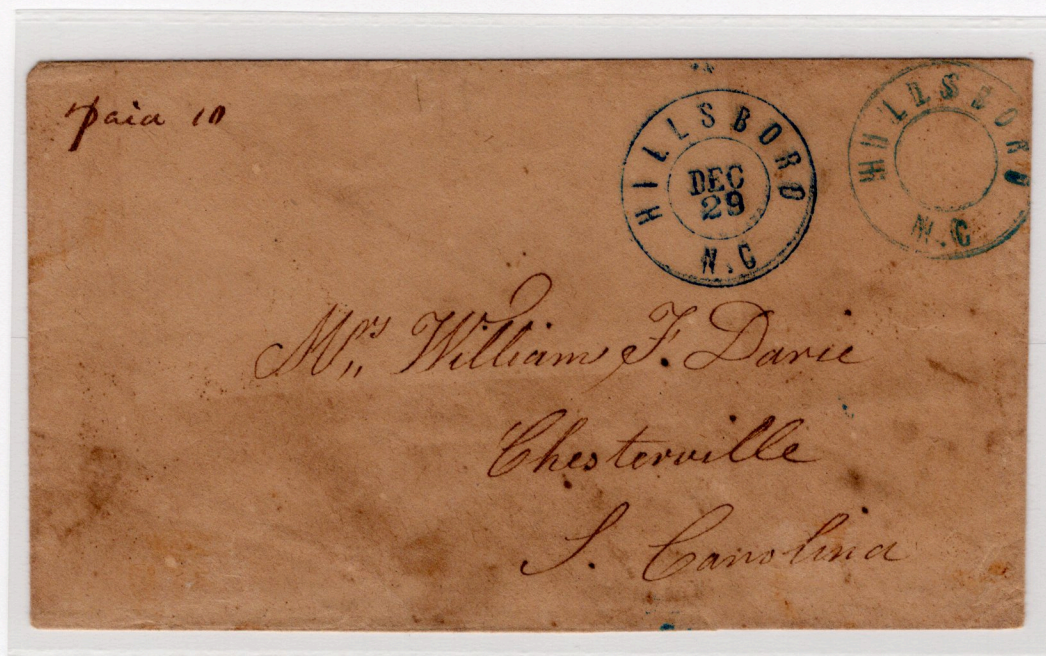 Paid 10
HILLSBORO
DEC
29
N.C
HILLSBORO
N.C
Mrs William F. Davie
Chesterville
S. Carolina